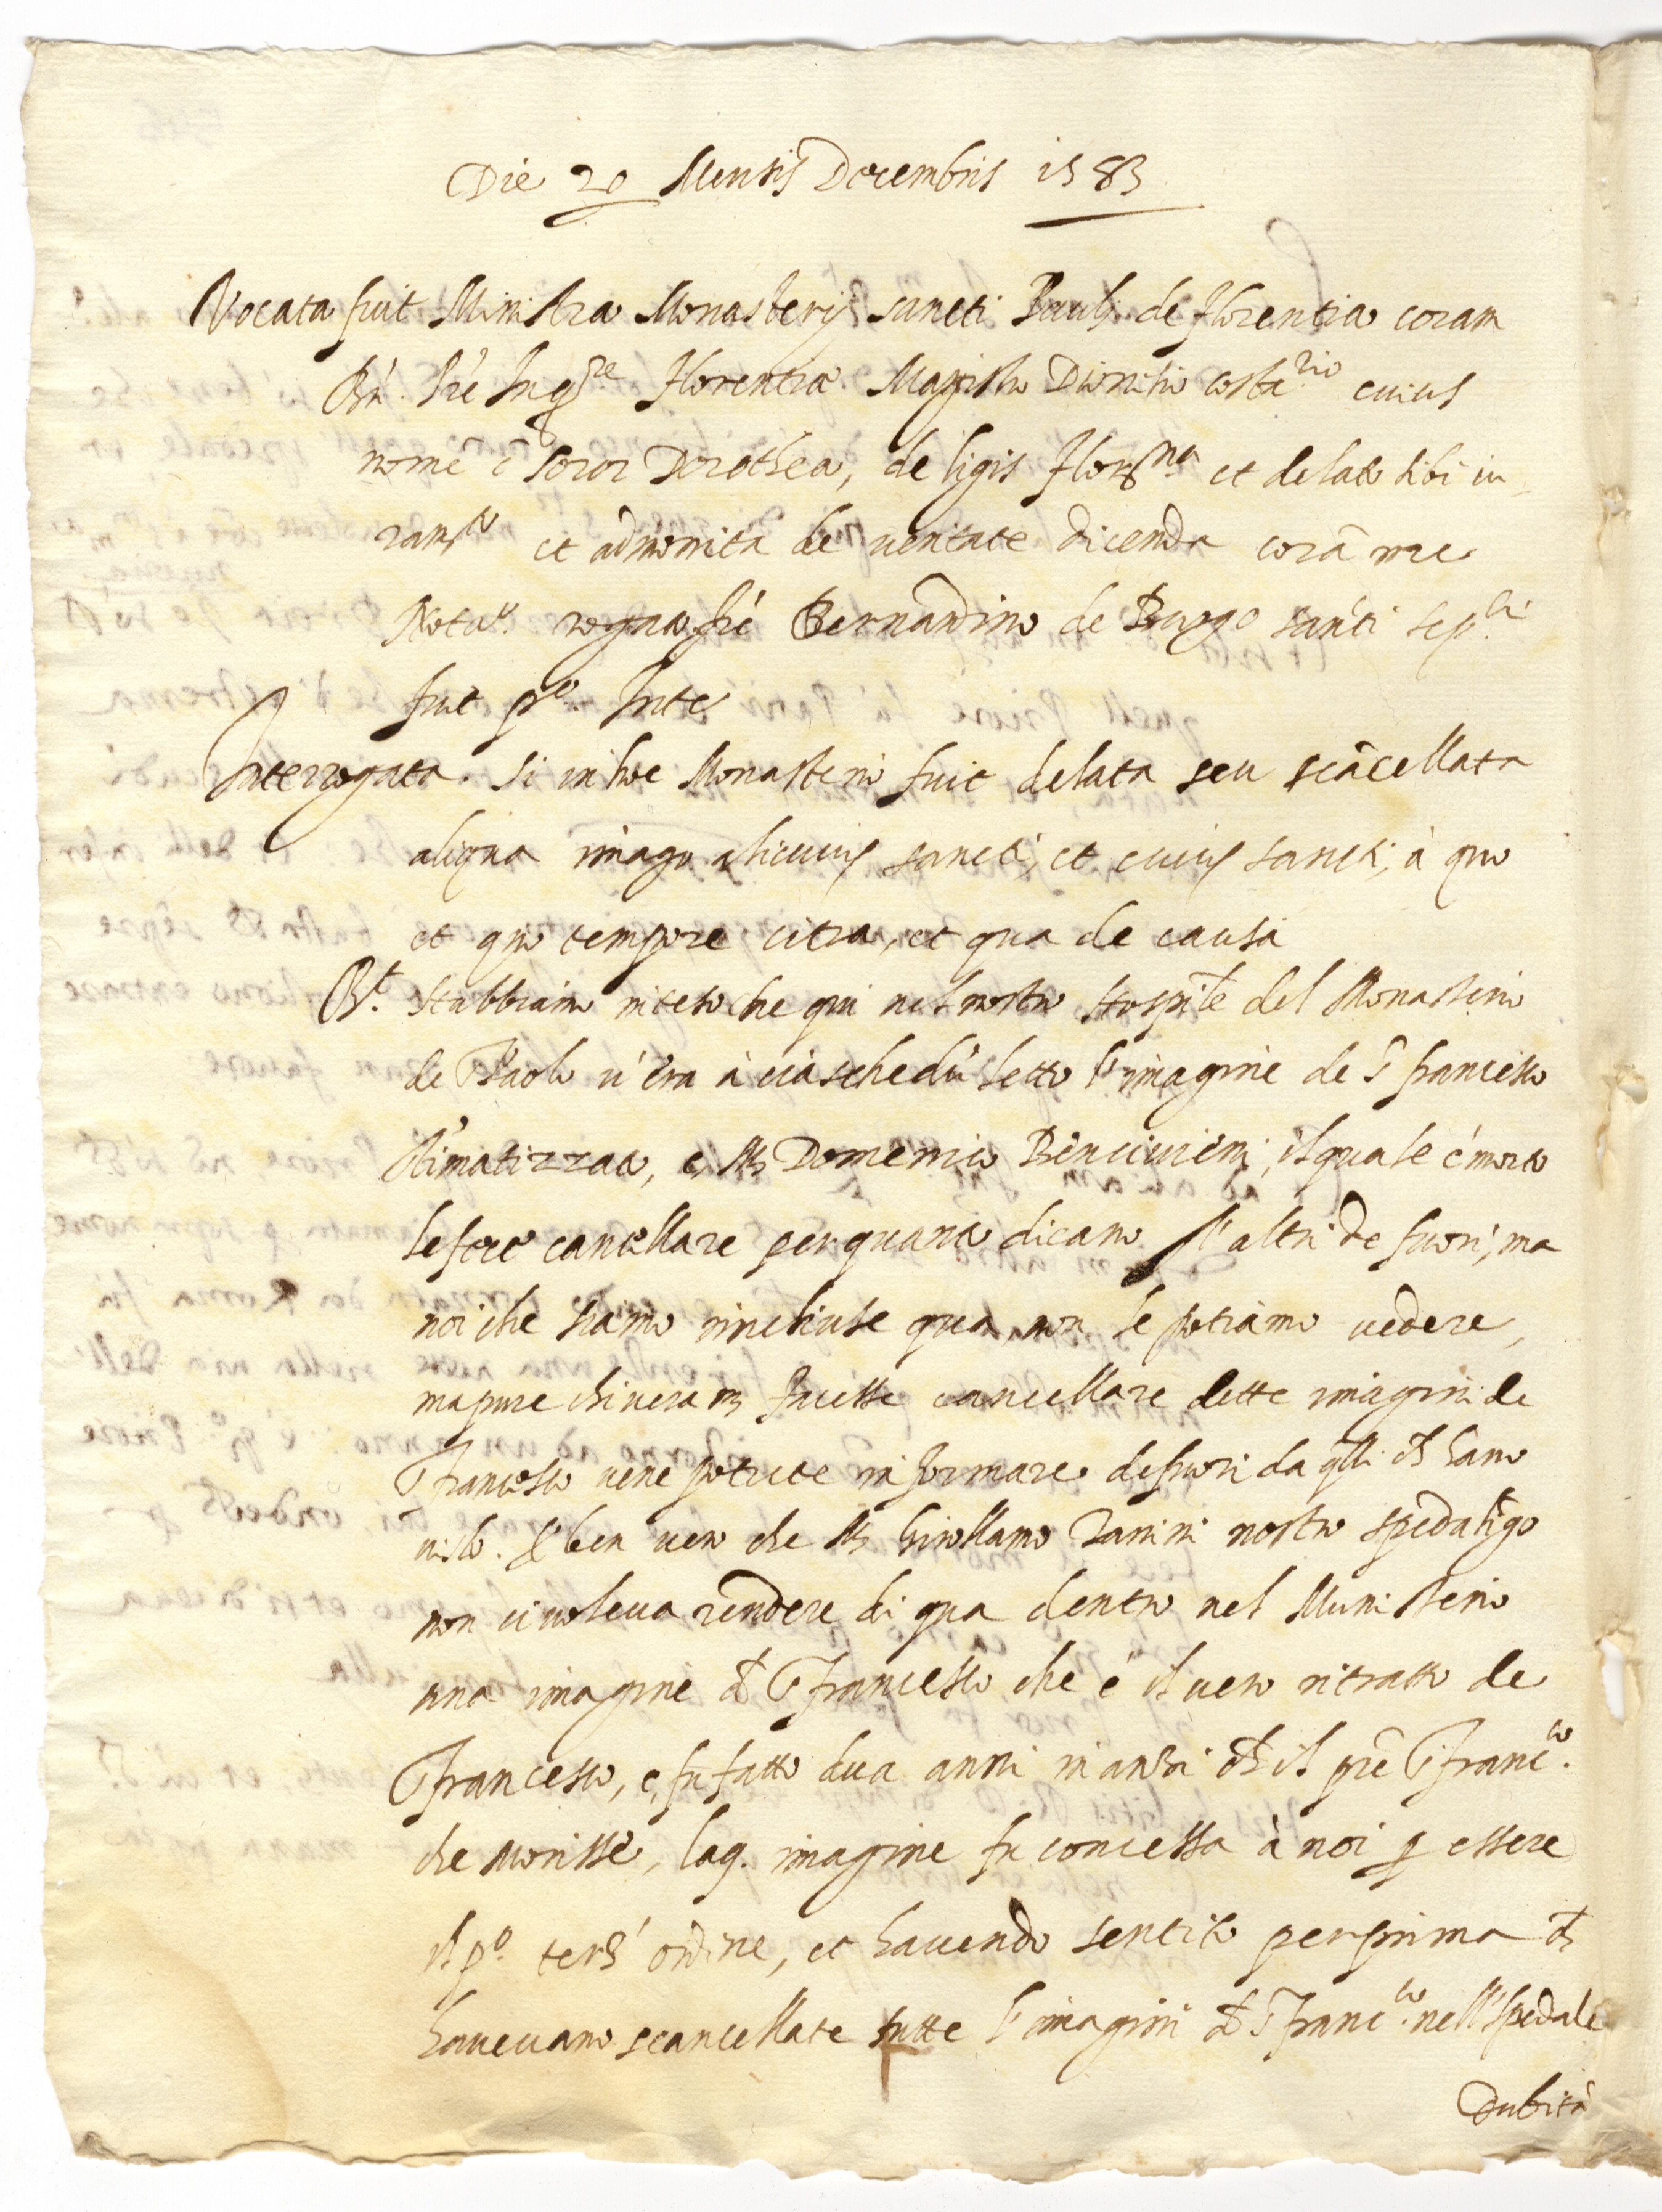 Die 20 Mensis Decembris 1583
Vocata fuit Ministra Monasterij sancti Pauli de Florentia coram
Rñ. frē Inqre Florentiæ Magistro Dionisio costario cuius
nomē ē soror Dorothea, de ligis Florna et delato sibi iu
ramto et admonita de ueritate dicenda corā me
Notao. rogato frē Bernardino de Burgo sancti sepli
fuit pro. Inte
Interrogata. si in hoc Monasterio fuit delata seu scācellata
aliqua imago alicuius sancti, et cuius sancti, à quo
et quo tempore citra, et qua de causa
Rt. Habbiamo inteso che qui nel nostro Hospitle del Monasterio
de S Paolo u'era à ciaschedũ letto l'imagine de S francesco
stimatizzato, e Ms Domenico Benciuieni, il quale è morto
le fece cancellare per quanto dicano l'altri de fuori, ma
noi che stiamo rinchiuse qua, non le potiamo uedere,
ma pure chi ueram facesse cancellare dette imagini de
S Francesco uene potrete informare defuori da qlli ch hano
uisto. E' ben uero che Ms Girollamo Zanini nostro spedaligo
non ci uoleua rendere di qua dentro nel Munisterio
una imagine d S francesco che è il uero ritratto de
S francesco, e fu fatto dua anni inanzi ch il prē S francco.
che morisse, laq. imagine fu concessa à noi p essere
il po. terz' ordine, et hauendo sentito per prima ch
haueuano scancellate tutte l'imagini d S francco. nell'spedale
Dubità